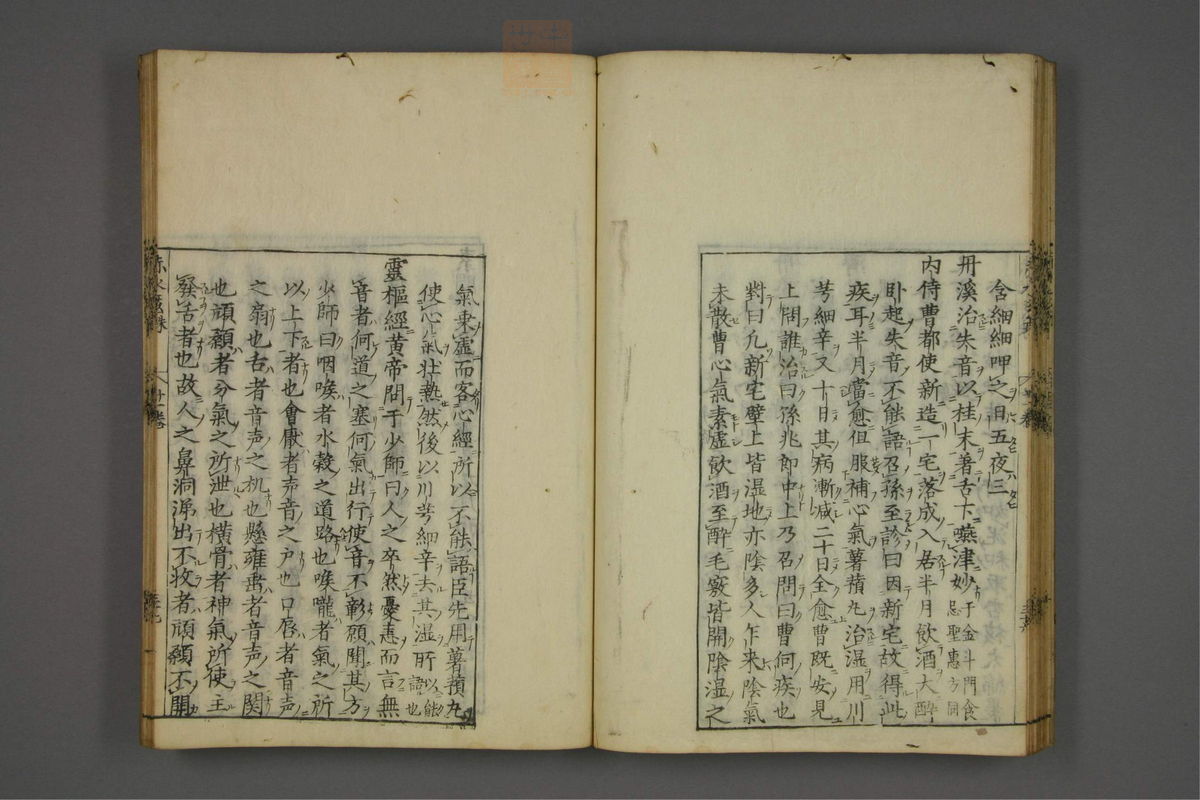 含細細呷之日五夜三
丹溪治失音以桂末著舌下嚥津妙于金斗門食忌聖惠方同
内侍曹都使新造一宅落成入居半月飲酒大醉
卧起失音不能語召孫至診曰因新宅故得此
疾耳半月當愈但服補心氣薯蕷丸治湿用川
芎細辛又十日其病漸减二十日全愈曹既安見
上問誰治曰孫兆郎中上乃召問曰曹何疾也
對曰凢新宅壁上皆湿地亦陰多人乍来陰氣
未散曹心氣素虚飲酒至醉毛竅皆開陰湿之
氣乗虚而客心經所以不能語臣先用薯蕷丸
使心氣壮熱然後以川芎細辛去其湿所以能語也
靈樞經黄帝問于少師曰人之卒然憂恚而言無
音者何道之塞何氣出行使音不彰願聞其方
少師曰咽喉者水穀之道路也喉嚨者氣之所
以上下者也會厭者声音之户也口唇者音声
之扇也舌者音声之机也懸雍垂者音声之関
也頏顙者分氣之所泄也横骨者神氣所使主
發舌者也故人之鼻洞涕出不收者頏顙不開